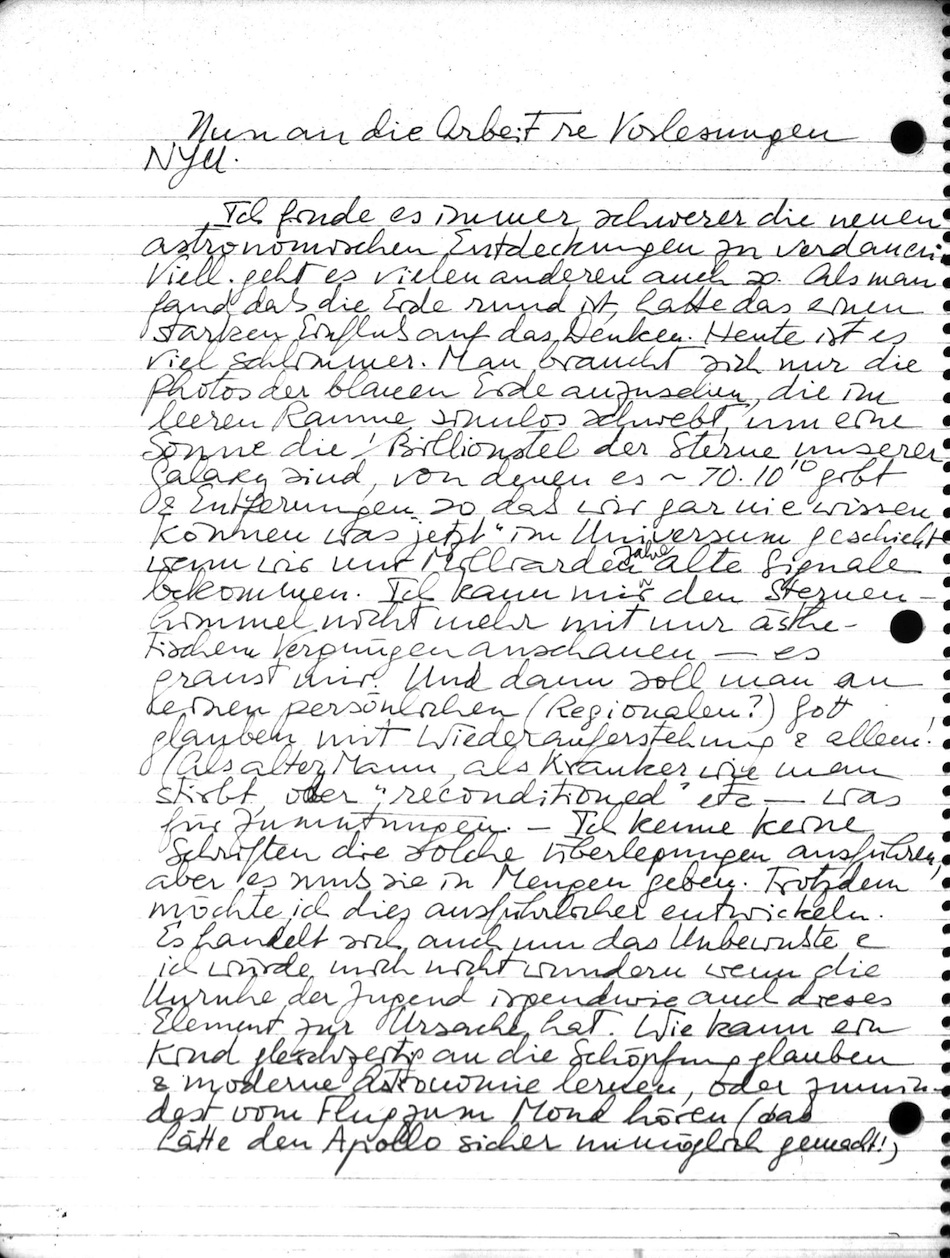 Nun an die Arbeit re Vorlesungen
NYU.
Ich finde es immer schwerer die neuen
astronomischen Entdeckungen zu verdauen.
Viell. geht es vielen anderen auch so. Als man
fand daß die Erde rund ist, hatte das einen
starken Einfluß auf das Denken. Heute ist es
viel schlimmer. Man braucht sich nur die
Photos der blauen Erde anzusehen, die im
leeren Raume sinnlos schwebt, um eine
Sonne die 1 Billionstel der Sterne unserer
Galaxy sind, von denen es ~ 70.10¹⁰ gibt
& Entfernungen so daß wir gar nie wissen
können was "jetzt" im Universum geschieht
wenn wir nur Milliarden Jahre alte Signale
bekommen. Ich kann mir den Sternen-
himmel nicht mehr mit nur ästhe-
tischem Vergnügen anschauen — es
graust mir. Und dann soll man an
einen persönlichen (Regionalen?) Gott
glauben mit Wiederauferstehung & allem!
(Als alter Mann, als Kranker wie man
stirbt, oder "reconditioned" etc — was
für Zumutungen. — Ich kenne keine
Schriften die solche Überlegungen ausführen,
aber es muß sie in Mengen geben. Trotzdem
möchte ich dies ausführlicher entwickeln.
Es handelt sich auch um das Unbewußte &
ich würde mich nicht wundern wenn die
Unruhe der Jugend irgendwie auch dieses
Element zur Ursache hat. Wie kann ein
Kind gleichzeitig an die Schöpfung glauben
& moderne Astronomie lernen, oder zumin-
dest vom Flug zum Mond hören (das
hätte den Apollo sicher unmöglich gemacht!)